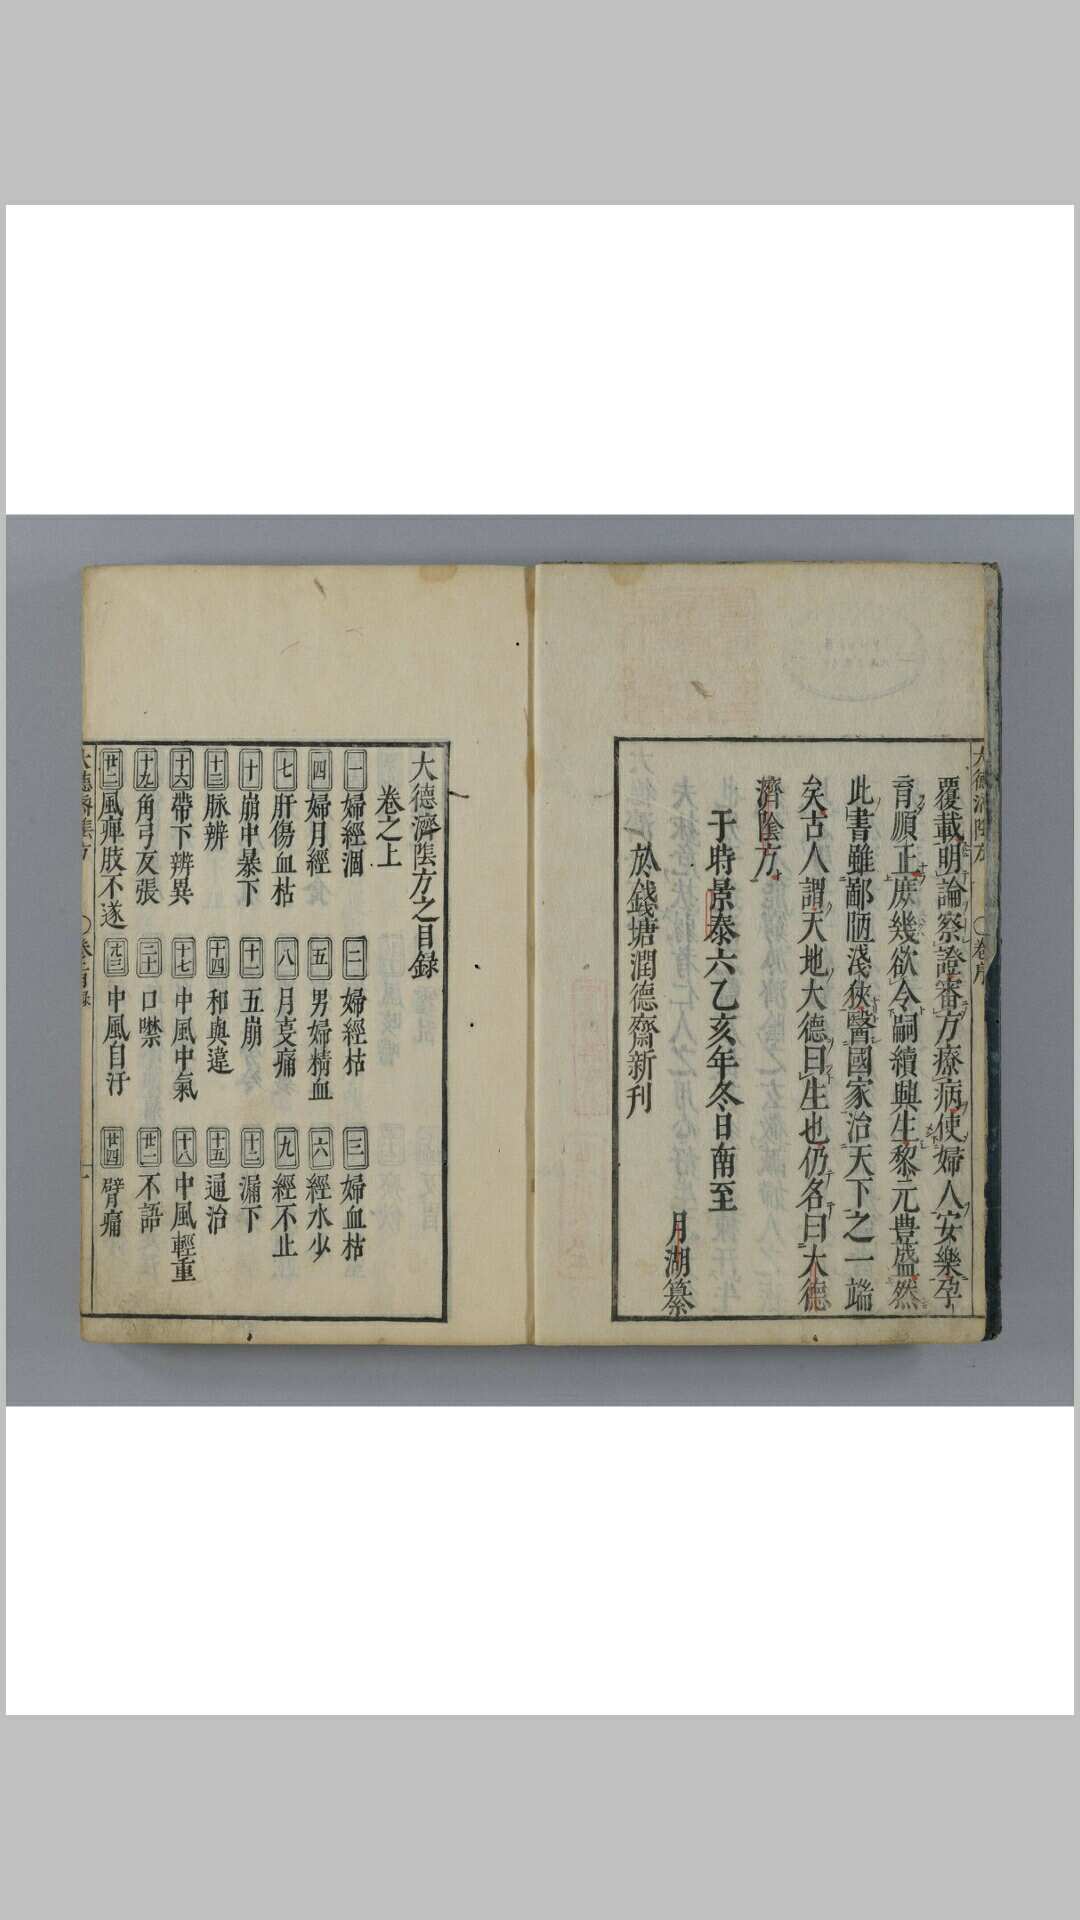 大德濟陰方
卷序
覆載明論察證審方療病使婦人安樂孕
育順正庶幾欲令嗣續興生黎元豊盛然
此書雖鄙陋淺狹醫國家治天下之一端
矣古人謂天地大德曰生也仍名曰大德
濟陰方
于時景泰六乙亥年冬日南至
月湖纂
於錢塘潤德齋新刊
大德濟陰方之目錄
卷之上
一 婦經涸 二 婦經枯 三 婦血枯
四 婦月經 五 男婦精血 六 經水少
七 肝傷血枯 八 月宴痛 九 經不止
十 崩中暴下 十一 五崩 十二 漏下
十三 脉辨 十四 和與違 十五 通治
十六 帶下辨異 十七 中風中氣 十八 中風輕重
十九 角弓反張 二十 口噤 廿一 不語
廿二 風痺肢不遂 廿三 中風自汗 廿四 臂痛
大德濟陰方
卷上目録
一